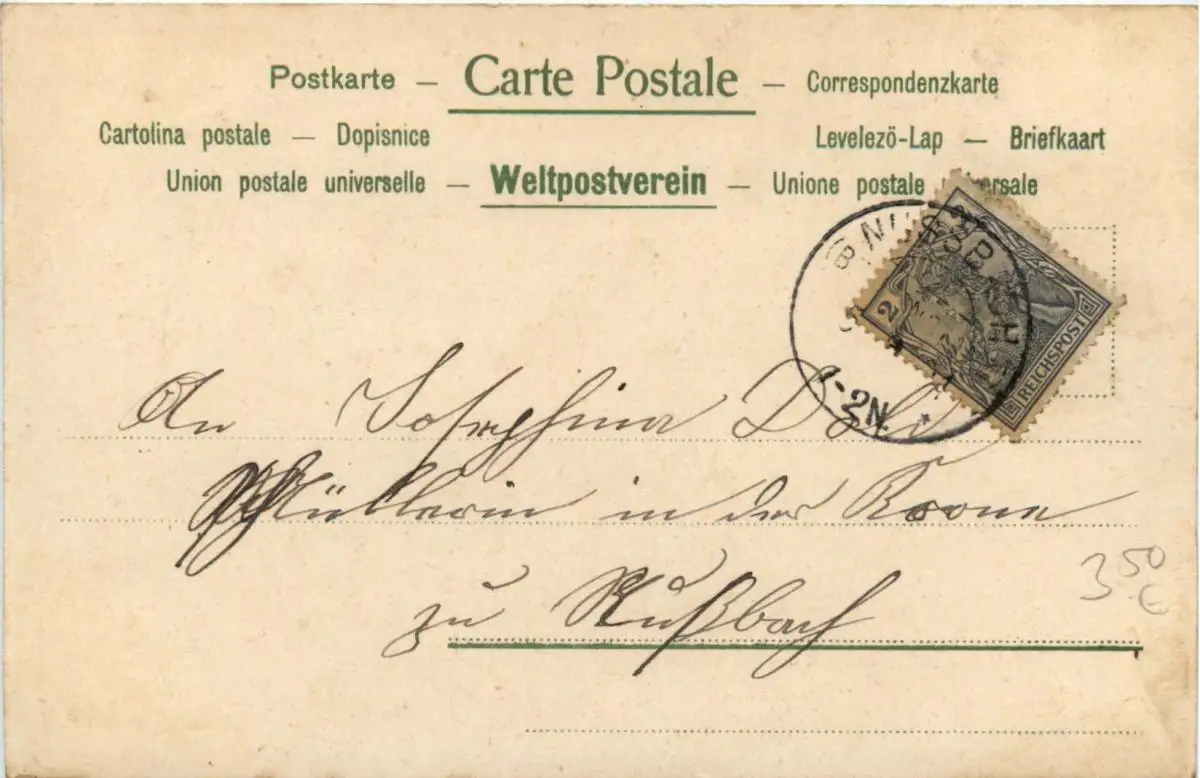 Postkarte — Carte Postale — Correspondenzkarte
Cartolina postale — Dopisnice Levelezö-Lap — Briefkaart
Union postale universelle — Weltpostverein — Unione postale
2
REICHSPOST
1-2N. *
An Josephina
in der Krone
zu Nußbach
3 50 €